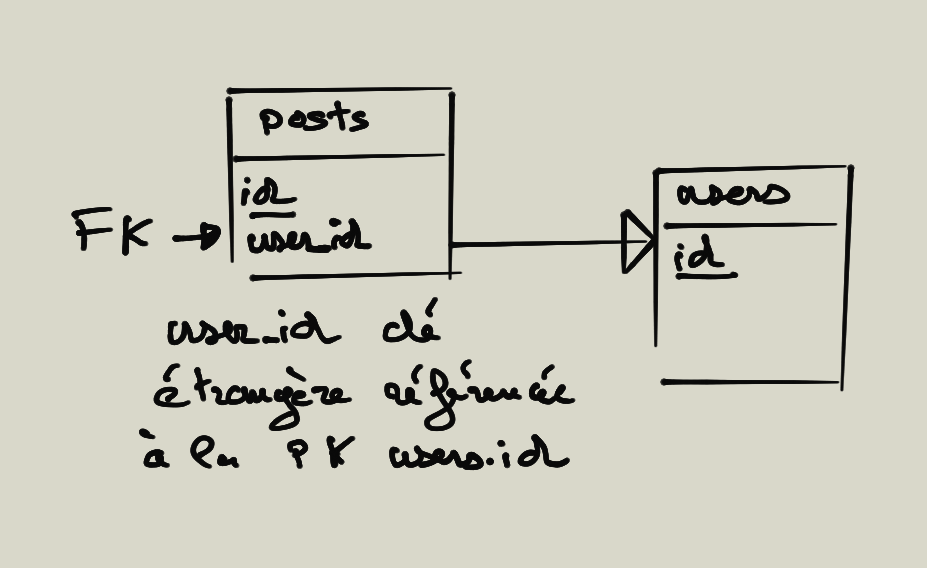 posts
id
FK
user_id
users
id
user_id clé
étrangère référencée
à la PK users.id